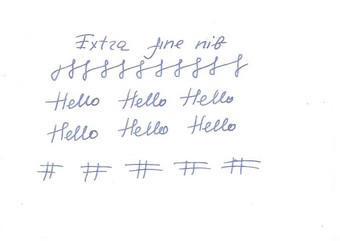 Extra fine nib
Hello Hello Hello
Hello Hello Hello
# # # # #